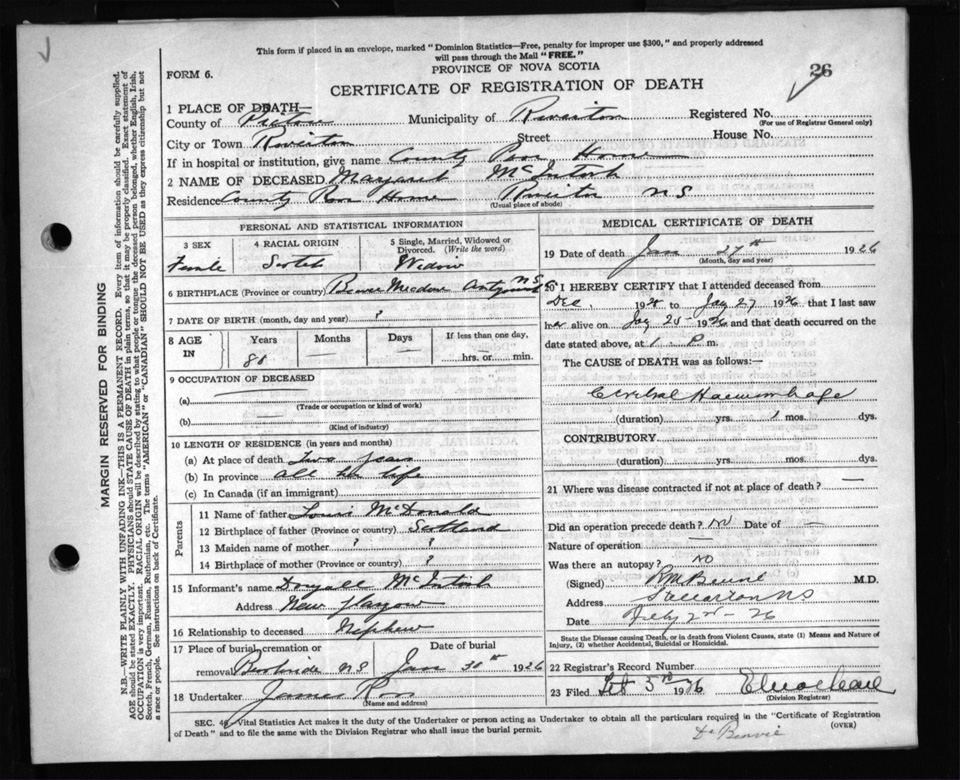 This form if placed in an envelope, marked "Dominion Statistics—Free, penalty for improper use $300," and properly addressed
will pass through the Mail "FREE."
PROVINCE OF NOVA SCOTIA
FORM 6.
26
CERTIFICATE OF REGISTRATION OF DEATH
1 PLACE OF DEATH—
County of Pictou Municipality of Riverton Registered No.
(For use of Registrar General only)
City or Town Riverton Street House No.
If in hospital or institution, give name County Poor Home
2 NAME OF DECEASED Margaret McIntosh
Residence County Poor Home Riverton N S
(Usual place of abode)
PERSONAL AND STATISTICAL INFORMATION
3 SEX 4 RACIAL ORIGIN 5 Single, Married, Widowed or Divorced. (Write the word)
Female Scotch Widow
6 BIRTHPLACE (Province or country) Beaver Meadow N S
7 DATE OF BIRTH (month, day and year) ?
8 AGE IN Years Months Days If less than one day,
— — hrs. or min.
9 OCCUPATION OF DECEASED
(a)
(Trade or occupation or kind of work)
(b)
(Kind of industry)
10 LENGTH OF RESIDENCE (in years and months)
(a) At place of death Two years
(b) In province All her life
(c) In Canada (if an immigrant)
Parents
11 Name of father McDonald
12 Birthplace of father (Province or country) Scotland
13 Maiden name of mother ? ?
14 Birthplace of mother (Province or country) ?
15 Informant's name Dougall McIntosh
Address New Glasgow
16 Relationship to deceased Nephew
17 Place of burial, cremation or Date of burial
removal N S Jan 30th 1926
18 Undertaker James Ross
(Name and address)
MEDICAL CERTIFICATE OF DEATH
19 Date of death Jan 27th 1926
(Month, day and year)
20 I HEREBY CERTIFY that I attended deceased from
Dec, 19 to Jay 27 1926 that I last saw
her alive on Jay 25 1926 and that death occurred on the
date stated above, at 1 P m.
The CAUSE of DEATH was as follows—
Cerebral Haemorrhage
(duration) yrs. 1 mos. dys.
CONTRIBUTORY
(duration) yrs. mos. dys.
21 Where was disease contracted if not at place of death? —
Did an operation precede death? No Date of —
Nature of operation —
Was there an autopsy? No
(Signed) M.D.
Address Stellarton N S
Date Feby 2nd - 26
State the Disease causing Death, or in death from Violent Causes, state (1) Means and Nature of
Injury, (2) whether Accidental, Suicidal or Homicidal.
22 Registrar's Record Number
23 Filed Feb 3rd 1926
(Division Registrar)
SEC. Vital Statistics Act makes it the duty of the Undertaker or person acting as Undertaker to obtain all the particulars required in the "Certificate of Registration
of Death" and to file the same with the Division Registrar who shall issue the burial permit. (OVER)
Benvie
MARGIN RESERVED FOR BINDING
N.B.—WRITE PLAINLY WITH UNFADING INK—THIS IS A PERMANENT RECORD. Every item of information should be carefully supplied.
AGE should be stated EXACTLY. PHYSICIANS should STATE CAUSE OF DEATH in plain terms, so that it may be properly classified. Exact statement of
OCCUPATION is very important. RACIAL ORIGIN will be described by stating to what people or tongue the deceased person belonged, whether English, Irish,
Scotch, French, German, Russian, Ruthenian, etc. The terms "AMERICAN" or "CANADIAN" SHOULD NOT BE USED as they express citizenship but not
a race or people. See instructions on back of Certificate.